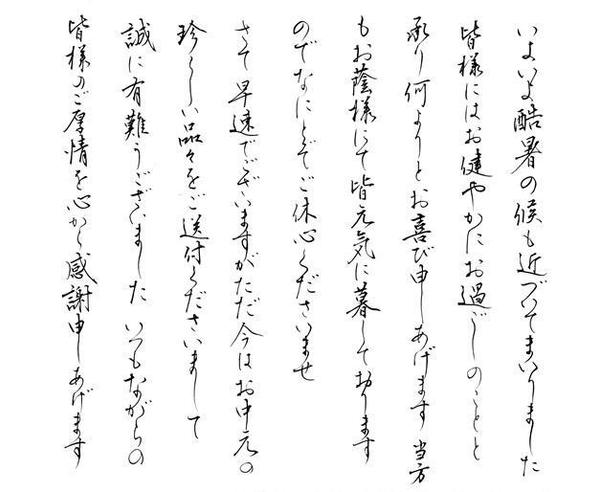 いよいよ酷暑の候も近づいてまいりました
皆様にはお健やかにお過ごしのことと
承り何よりとお喜び申しあげます 当方
もお蔭様にて皆元気に暮しております
のでなにとぞご休心くださいませ
さて早速でございますがただ今はお中元の
珍らしい品々をご送付くださいまして
誠に有難うございました いつもながらの
皆様のご厚情を心から感謝申しあげます